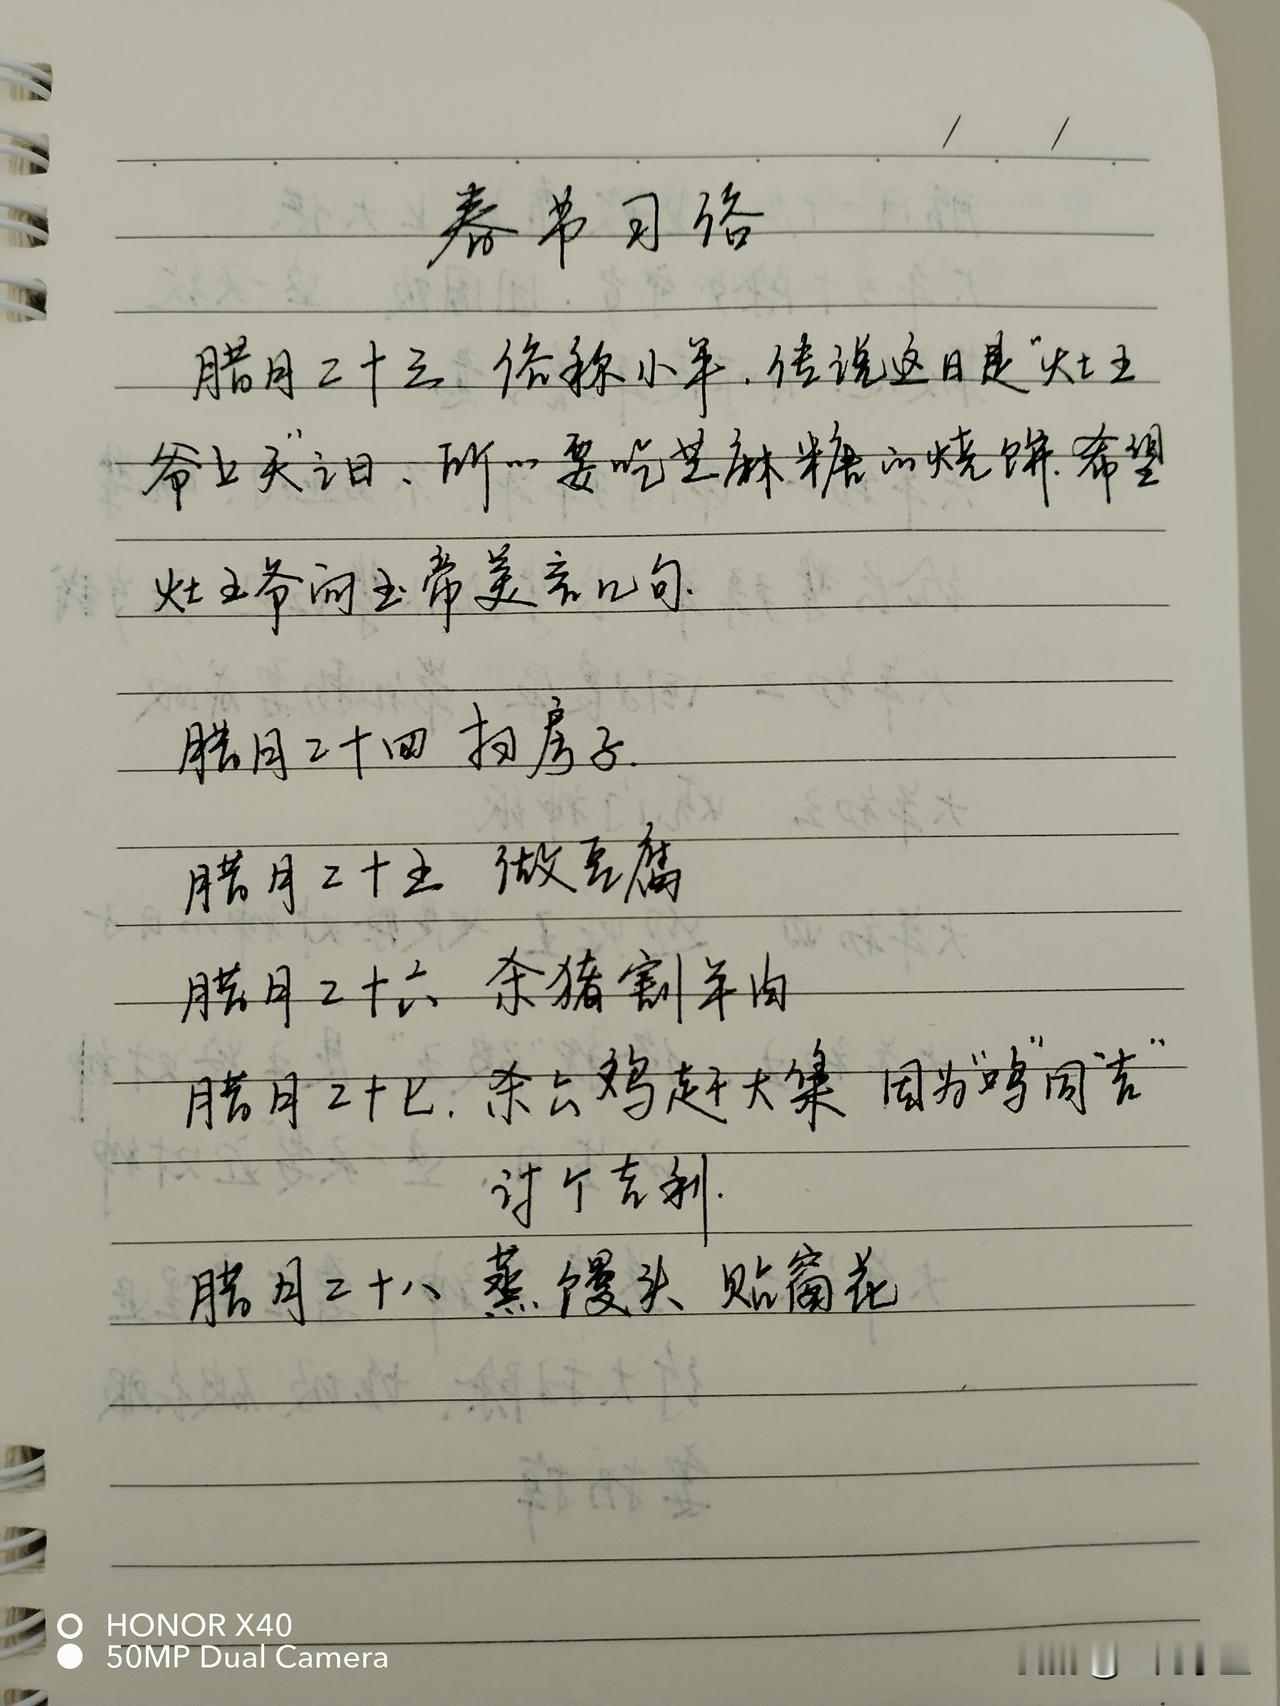 / /
春节习俗
腊月二十三 俗称小年.传说这日是"灶王
爷上天"之日、所以要吃芝麻糖的烧饼.希望
灶王爷向玉帝美言几句.
腊月二十四 扫房子.
腊月二十五 做豆腐
腊月二十六 杀猪割羊肉
腊月二十七.杀公鸡赶大集 因为"鸡"同"吉"
讨个吉利.
腊月二十八 蒸馒头 贴窗花
HONOR X40
50MP Dual Camera